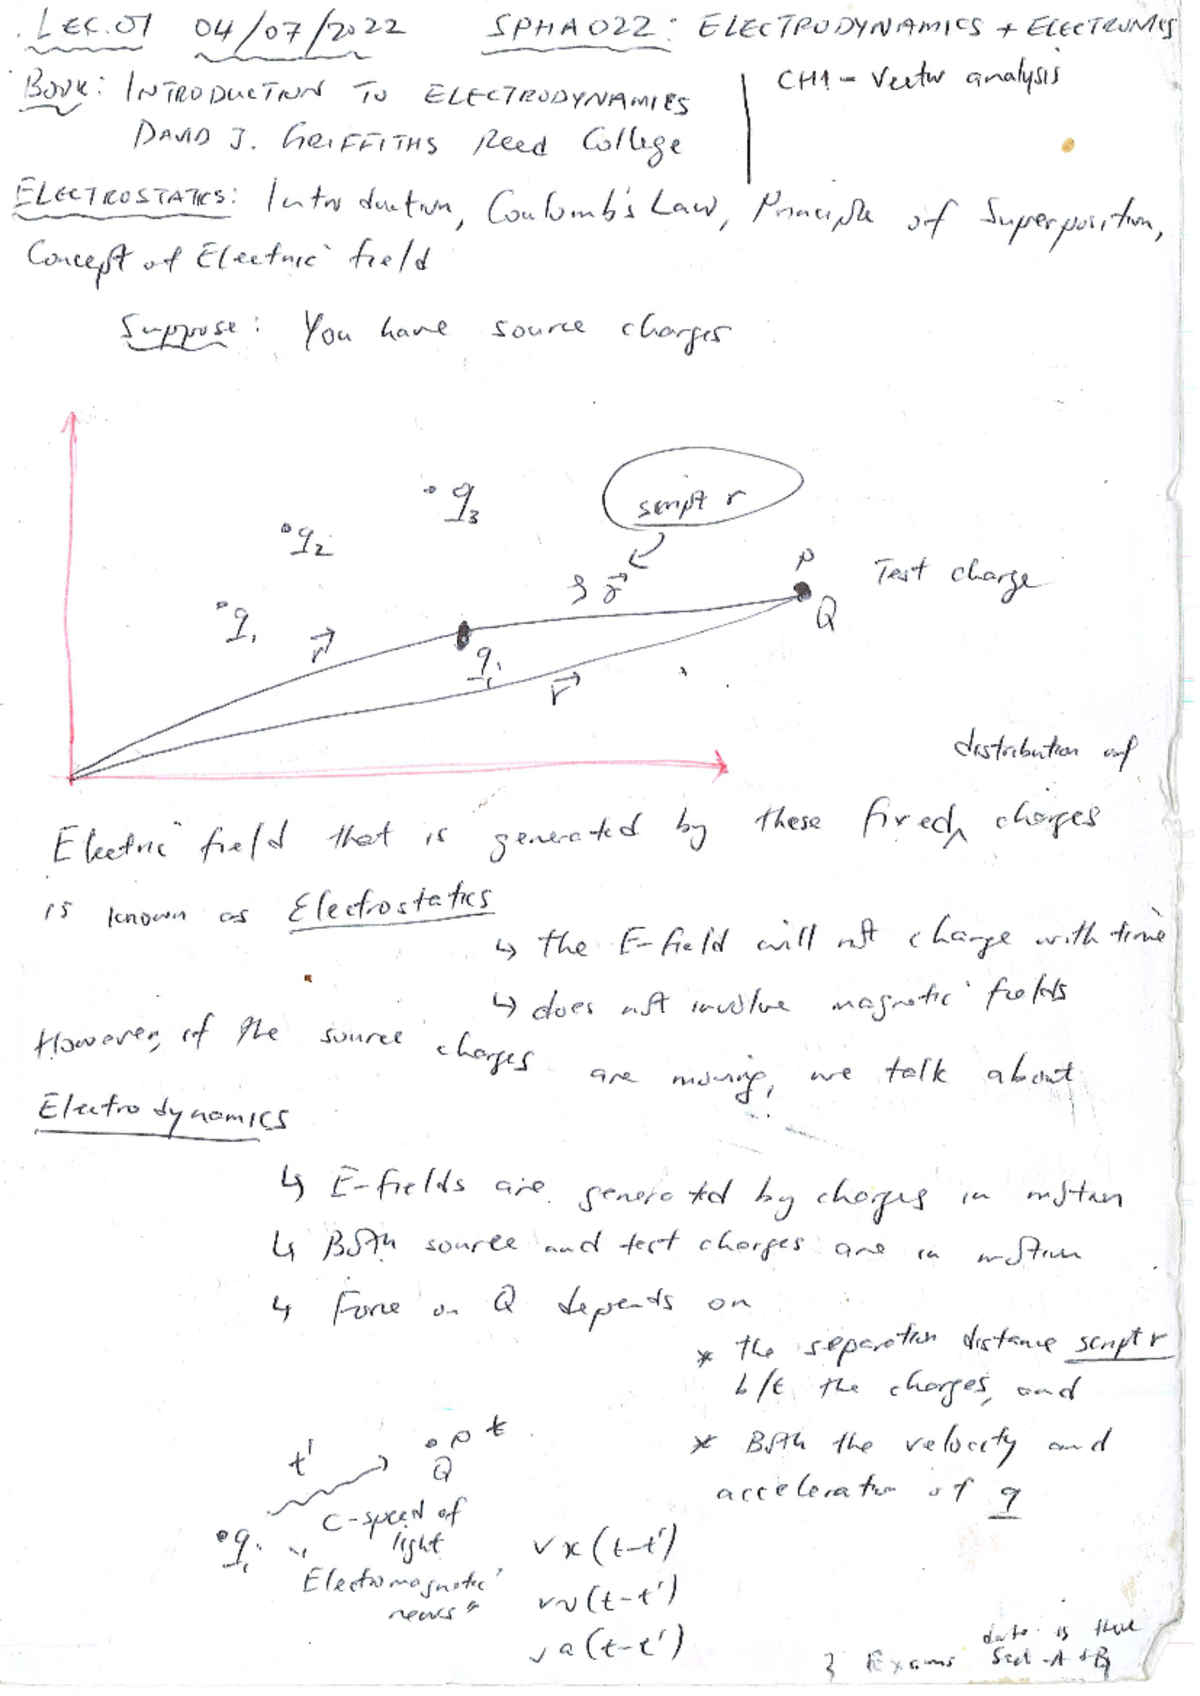 LEC.01 04/07/2022 SPHA022: ELECTRODYNAMICS + ELECTRONICS
Book: INTRODUCTION TO ELECTRODYNAMICS
DAVID J. GRIFFITHS Reed College
CH1 - Vector analysis
ELECTROSTATICS: Introduction, Coulomb's Law, Principle of Superposition,
Concept of Electric field
Suppose: You have source charges
q₃
script r
q₂
P
Test charge
r⃗
Q
q₁
r⃗
qᵢ
r⃗
distribution of
Electric field that is generated by these fixed charges
is known as Electrostatics
↳ the E-field will not change with time
↳ does not involve magnetic fields
However, if the source charges are moving, we talk about
Electrodynamics
↳ E-fields are generated by charges in motion
↳ Both source and test charges are in motion
↳ Force on Q depends on
* the separation distance script r
b/t the charges, and
* Both the velocity and
acceleration of q
t'
P t
Q
c-speed of
light
qᵢ
"Electromagnetic
news"
✓ x(t-t')
✓ v(t-t')
✓ a(t-t')
date is there
Exams Sect-A+B